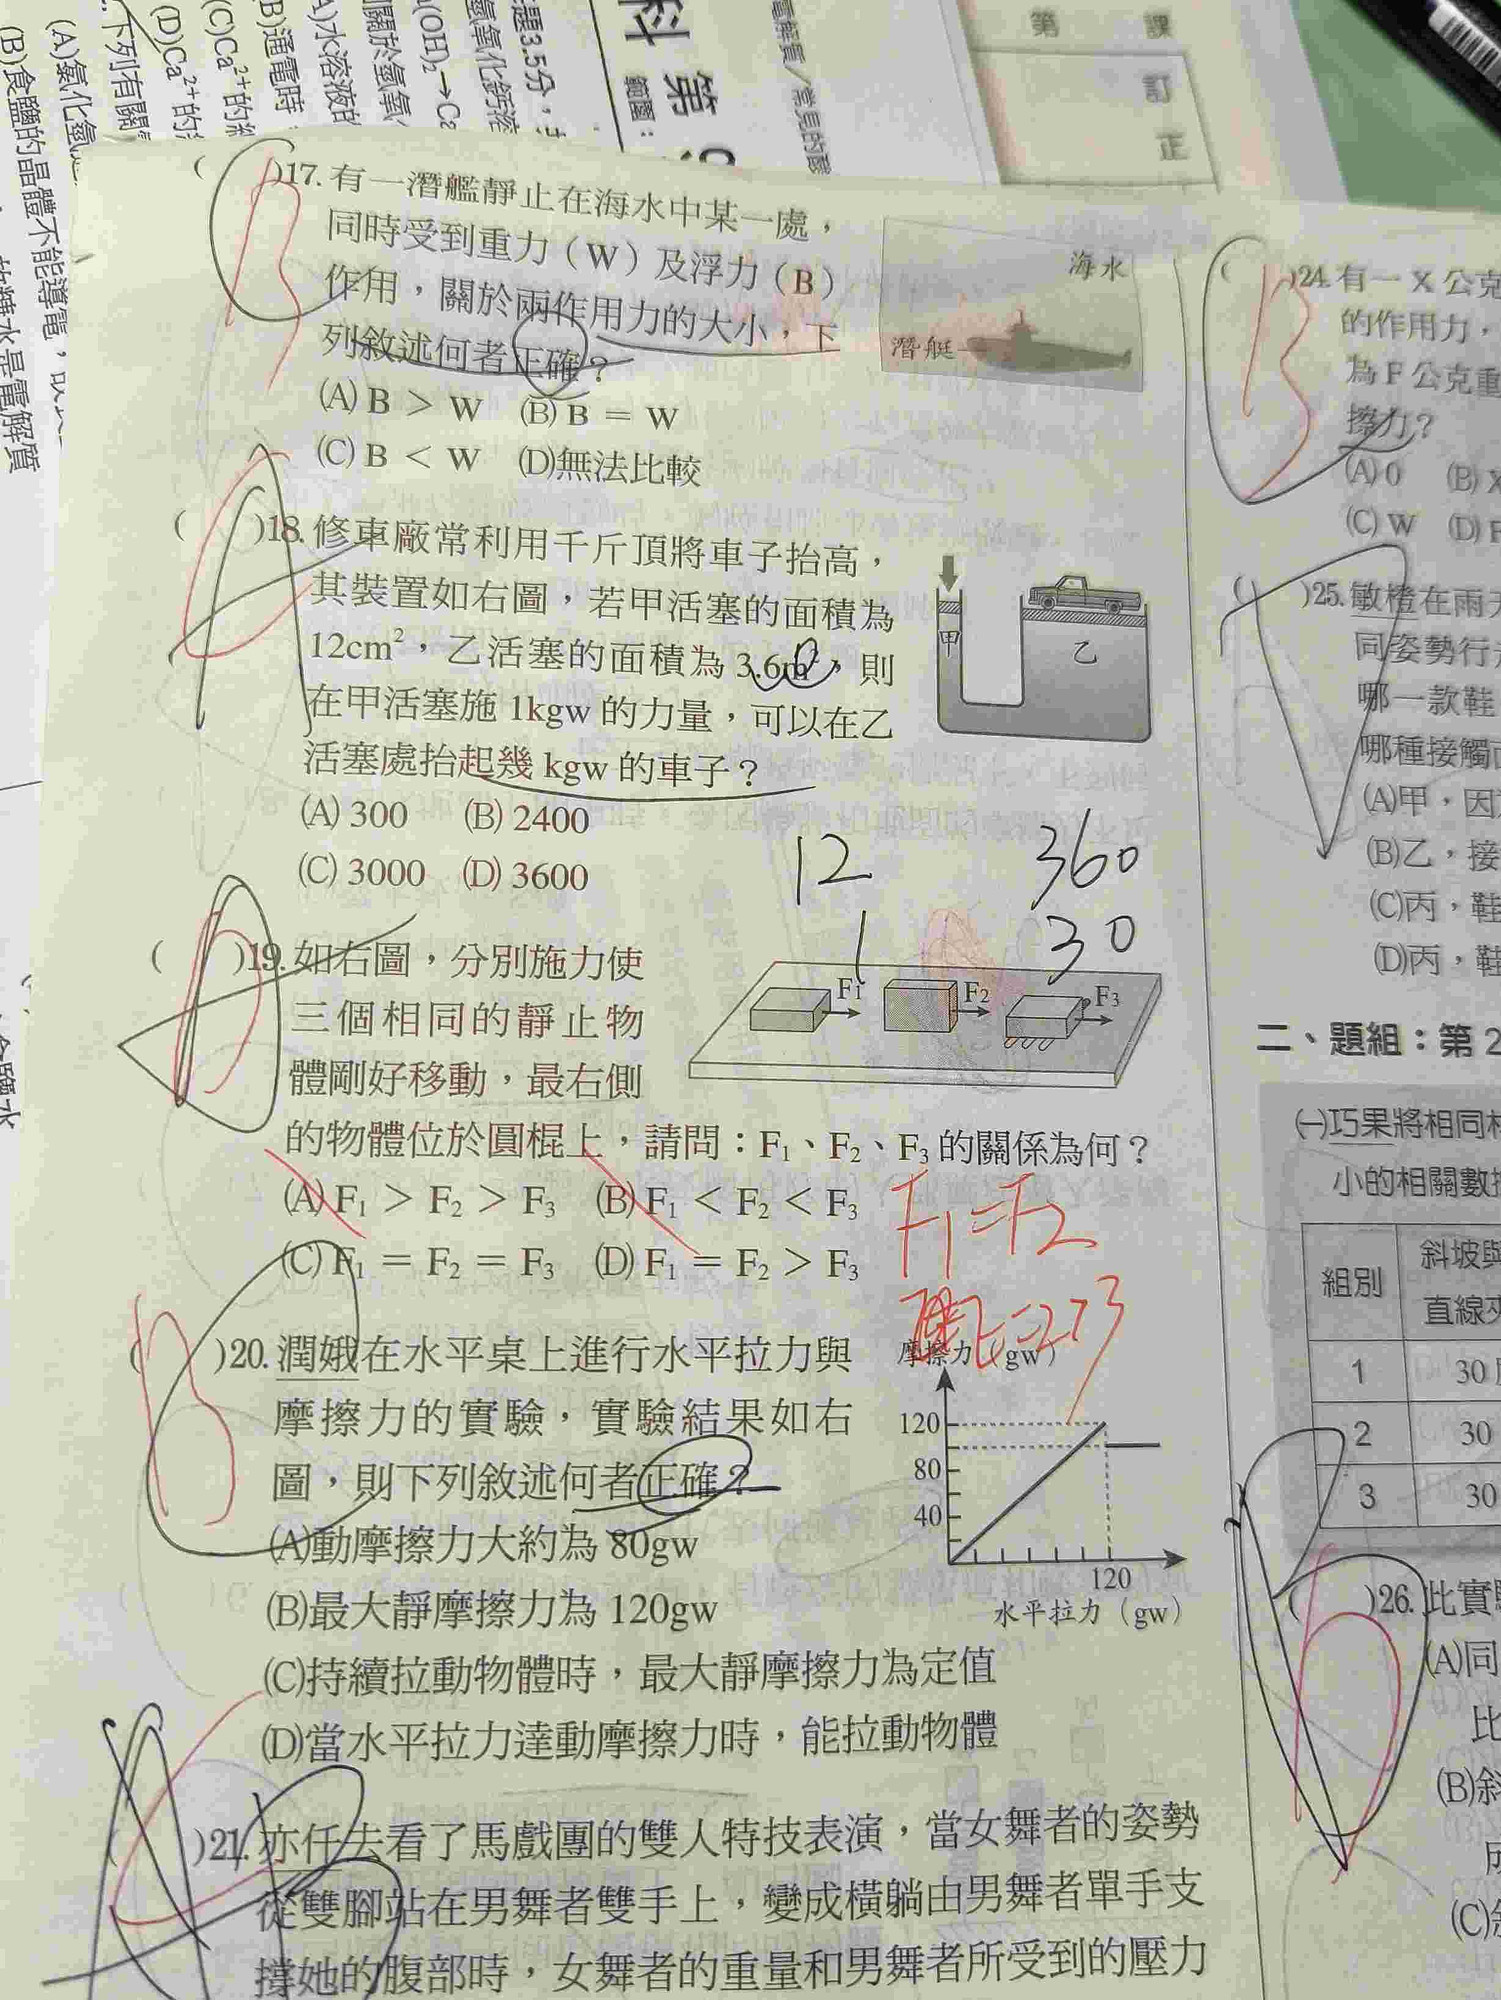 )17. 有一潛艦靜止在海水中某一處，
同時受到重力（W）及浮力（B）
作用，關於兩作用力的大小，下
列敘述何者正確？
(A) B > W (B) B = W
(C) B < W (D)無法比較
海水
潛艇
B
( )18. 修車廠常利用千斤頂將車子抬高，
其裝置如右圖，若甲活塞的面積為
12cm²，乙活塞的面積為 3.6m²，則
在甲活塞施 1kgw 的力量，可以在乙
活塞處抬起幾 kgw 的車子？
(A) 300 (B) 2400
(C) 3000 (D) 3600
甲
乙
A
12
360
1
30
( )19. 如右圖，分別施力使
三個相同的靜止物
體剛好移動，最右側
的物體位於圓棍上，請問：F₁、F₂、F₃ 的關係為何？
(A) F₁ > F₂ > F₃ (B) F₁ < F₂ < F₃
(C) F₁ = F₂ = F₃ (D) F₁ = F₂ > F₃
F₁
F₂
F₃
F1=F2
( )20. 潤娥在水平桌上進行水平拉力與
摩擦力的實驗，實驗結果如右
圖，則下列敘述何者正確？
(A)動摩擦力大約為 80gw
(B)最大靜摩擦力為 120gw
(C)持續拉動物體時，最大靜摩擦力為定值
(D)當水平拉力達動摩擦力時，能拉動物體
摩擦力（gw）
120
80
40
120
水平拉力（gw）
B
( )21. 亦仟去看了馬戲團的雙人特技表演，當女舞者的姿勢
從雙腳站在男舞者雙手上，變成橫躺由男舞者單手支
撐她的腹部時，女舞者的重量和男舞者所受到的壓力
( )24. 有一 X 公克
的作用力，
為 F 公克重
擦力？
(A) 0 (B) X
(C) W (D) F
B
( )25. 敏橙在雨天
同姿勢行
哪一款鞋
哪種接觸面
(A)甲，因
(B)乙，接
(C)丙，鞋
(D)丙，鞋
二、題組：第 2
㈠巧果將相同
小的相關數
組別
斜坡與
直線夾
1 30
2 30
3 30
( )26. 此實驗
(A)同
比
(B)斜
成
(C)斜
科 第 9
範圍：
第 課
訂
正
題3.5分，
(D)Ca²⁺的
(C)Ca²⁺的
B)通電時
A)水溶液
下列有關
(A)氯化氫
(B)食鹽的晶體不能導電，故